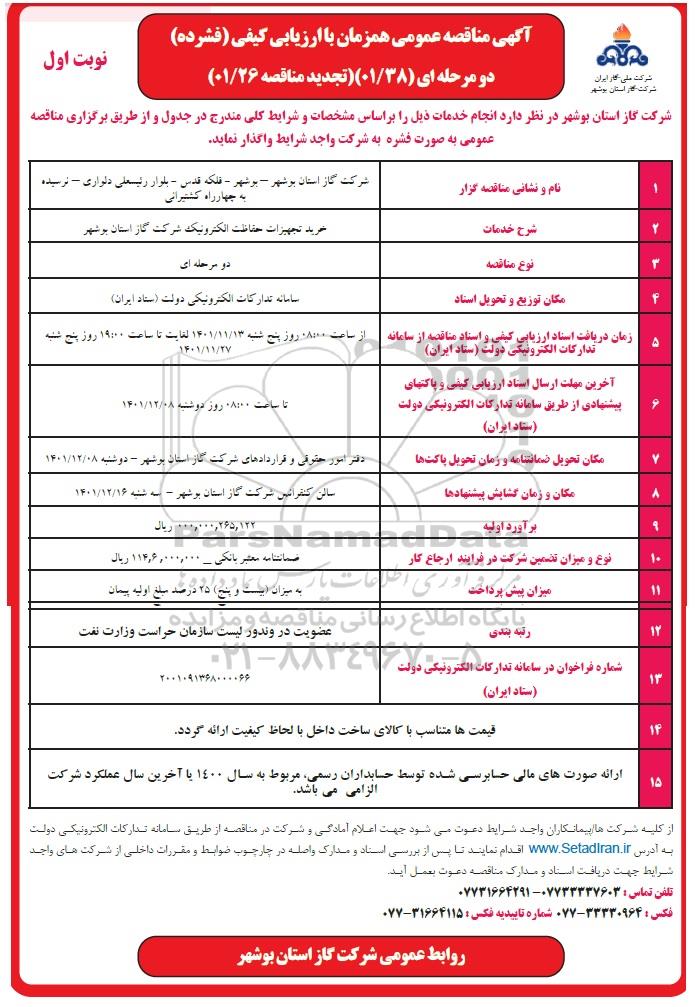 آگهی مناقصه عمومی همزمان با ارزیابی کیفی (فشرده)
دو مرحله ای (۰۱/۳۸)(تجدید مناقصه ۰۱/۲۶)
نوبت اول
شرکت ملی گاز ایران
شرکت گاز استان بوشهر
شرکت گاز استان بوشهر در نظر دارد انجام خدمات ذیل را براساس مشخصات و شرایط کلی مندرج در جدول و از طریق برگزاری مناقصه
عمومی به صورت فشره به شرکت واجد شرایط واگذار نماید.
۱ نام و نشانی مناقصه گزار شرکت گاز استان بوشهر – بوشهر - فلکه قدس - بلوار رئیسعلی دلواری – نرسیده
به چهارراه کشتیرانی
۲ شرح خدمات خرید تجهیزات حفاظت الکترونیک شرکت گاز استان بوشهر
۳ نوع مناقصه دو مرحله ای
۴ مکان توزیع و تحویل اسناد سامانه تدارکات الکترونیکی دولت (ستاد ایران)
۵ زمان دریافت اسناد ارزیابی کیفی و اسناد مناقصه از سامانه
تدارکات الکترونیکی دولت (ستاد ایران)
از ساعت ۰۸:۰۰ روز پنج شنبه ۱۴۰۱/۱۱/۱۳ لغایت تا ساعت ۱۹:۰۰ روز پنج شنبه
۱۴۰۱/۱۱/۲۷
۶ آخرین مهلت ارسال اسناد ارزیابی کیفی و پاکتهای
پیشنهادی از طریق سامانه تدارکات الکترونیکی دولت
(ستاد ایران)
تا ساعت ۰۸:۰۰ روز دوشنبه ۱۴۰۱/۱۲/۰۸
۷ مکان تحویل ضمانتنامه و زمان تحویل پاکت‌ها دفتر امور حقوقی و قراردادهای شرکت گاز استان بوشهر – دوشنبه ۱۴۰۱/۱۲/۰۸
۸ مکان و زمان گشایش پیشنهادها سالن کنفرانس شرکت گاز استان بوشهر - سه شنبه ۱۴۰۱/۱۲/۱۶
۹ برآورد اولیه ۰۰۰,۰۰۰,۲۶۵,۱۲۲ ریال
۱۰ نوع و میزان تضمین شرکت در فرایند ارجاع کار ضمانتنامه معتبر بانکی _ ۱۱۴,۶,۰۰۰,۰۰۰ ریال
۱۱ میزان پیش پرداخت به میزان (بیست و پنج) ۲۵ درصد مبلغ اولیه پیمان
۱۲ رتبه بندی عضویت در وندور لیست سازمان حراست وزارت نفت
۱۳ شماره فراخوان در سامانه تدارکات الکترونیکی دولت
(ستاد ایران)
۲۰۰۱۰۹۱۳۶۸۰۰۰۰۶۶
۱۴ قیمت ها متناسب با کالای ساخت داخل با لحاظ کیفیت ارائه گردد.
۱۵ ارائه صورت های مالی حسابرسی شده توسط حسابداران رسمی، مربوط به سال ۱۴۰۰ یا آخرین سال عملکرد شرکت
الزامی می باشد.
ParsNamadData
مرکز فرآوری اطلاعات پارس نماد داده ها
پایگاه اطلاع رسانی مناقصه و مزایده
۰۲۱-۸۸۳۴۹۶۷۰-۵
از کلیه شرکت ها/پیمانکاران واجد شرایط دعوت می شود جهت اعلام آمادگی و شرکت در مناقصه از طریق سامانه تدارکات الکترونیکی دولت
به آدرس www.SetadIran.ir اقدام نمایند تا پس از بررسی اسناد و مدارک واصله در چارچوب ضوابط و مقررات داخلی از شرکت های واجد
شرایط جهت دریافت اسناد و مدارک مناقصه دعوت بعمل آید.
تلفن تماس : ۰۷۷۳۳۳۳۷۶۰۳-۰۷۷۳۱۶۶۴۲۹۱
فکس : ۳۳۳۳۰۹۶۴-۰۷۷ شماره تاییدیه فکس : ۳۱۶۶۴۱۱۵-۰۷۷
روابط عمومی شرکت گاز استان بوشهر